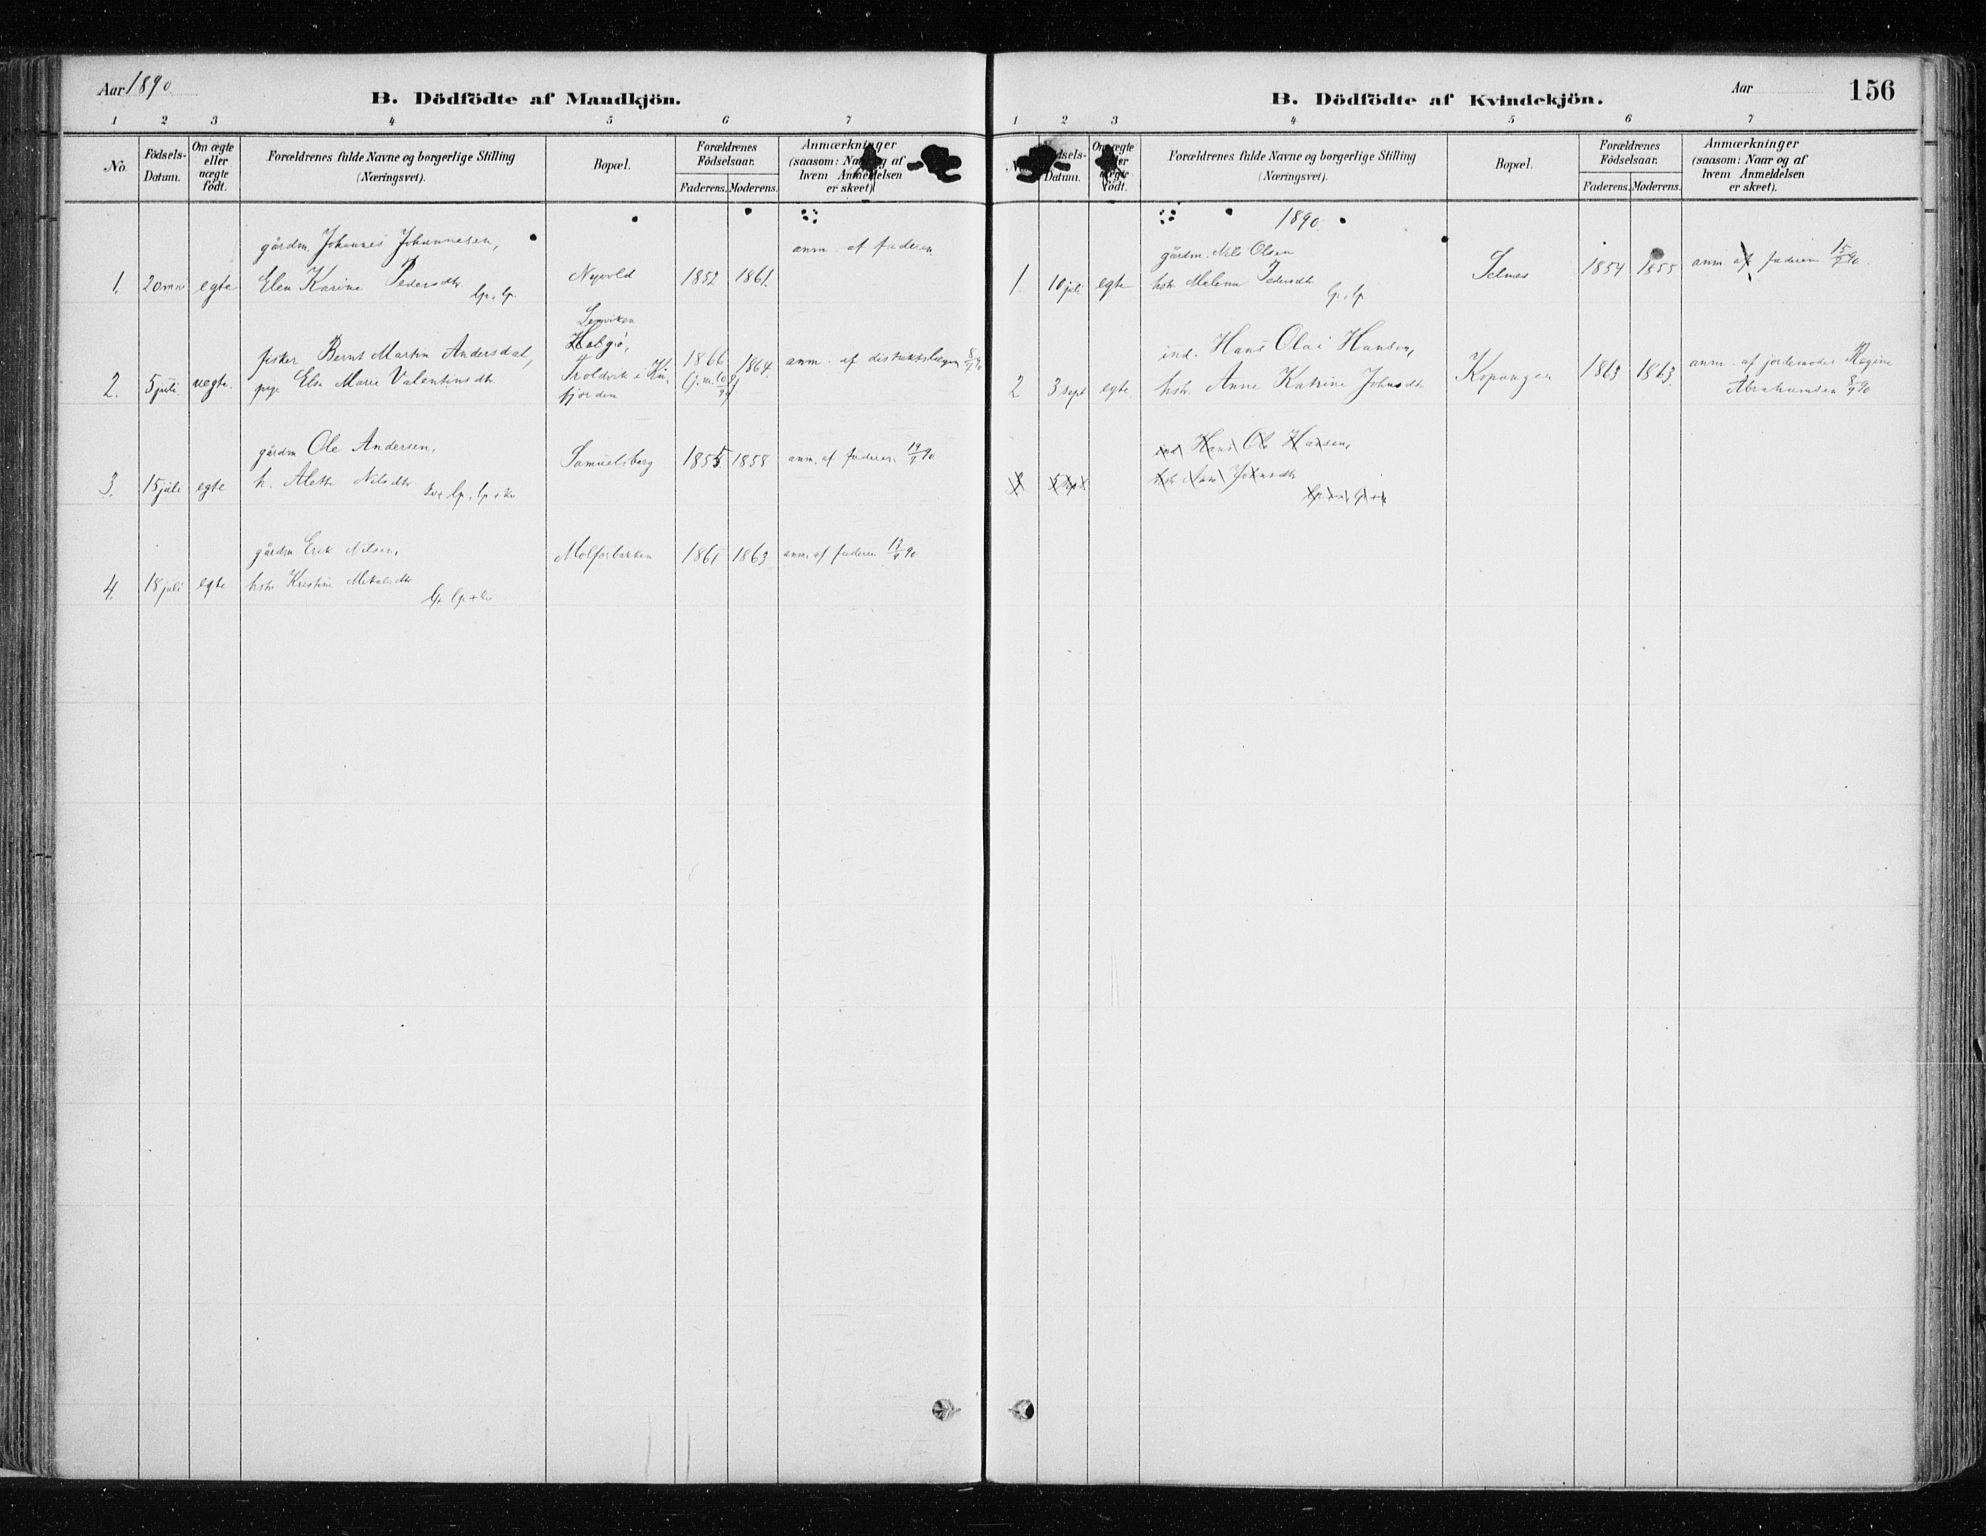 Aar 1890
B. Dödfödte af Mandkjön.
1 2 3 4 5 6 7
No. Födsels-Datum. Om ægte eller uægte födt. Forældrenes fulde Navne og borgerlige Stilling (Næringsvei). Bopæl. Forældrenes Födselsaar. Faderens. Moderens. Anmærkninger (saasom: Naar og af hvem Anmeldelsen er skeet).
gårdm. Johannes Johannesen, anm. af faderen
1. egte Elen Karine Pedersdtr Nyvold 1852 1861.
fisker Bernt Martin Andersdal, 1866 1864. anm. af distriktslægen 8/9 90
2. 5 juli uegte. pige Else Marie Valentinsdtr Troldvik i
fjorden
gårdm Ole Andersen, Samuelsberg 1855. 1858 anm. af faderen 14/9 90
3. 15 juli egte h. Aleth Nilsdtr
gårdm Erik Nilsen, 1865 1863 anm. af faderen
4. 18 juli egte hstr Kristine
Aar 156
B. Dödfödte af Kvindekjön.
1 2 3 4 5 6 7
Födsels-Datum. Om ægte eller uægte födt. Forældrenes fulde Navne og borgerlige Stilling (Næringsvei). Bopæl. Forældrenes Födselsaar. Faderens. Moderens. Anmærkninger (saasom: Naar og af hvem Anmeldelsen er skeet).
1890.
gårdm. Nils Olsen Selnes 1854 1855 anm af faderen 15/9 90.
1 10 juli egte hstr Malena Pedersdtr
ind. Hans Olai Hansen, Kopangen 1863 1863. anm. af jordemoder Regine
2 3 sept egte hstr. Anne Katrine Johnsdtr Abrahamsen 8/9 90
ind Hans Ole Hansen,
3 5 sept hstr Ane Johnsdtr